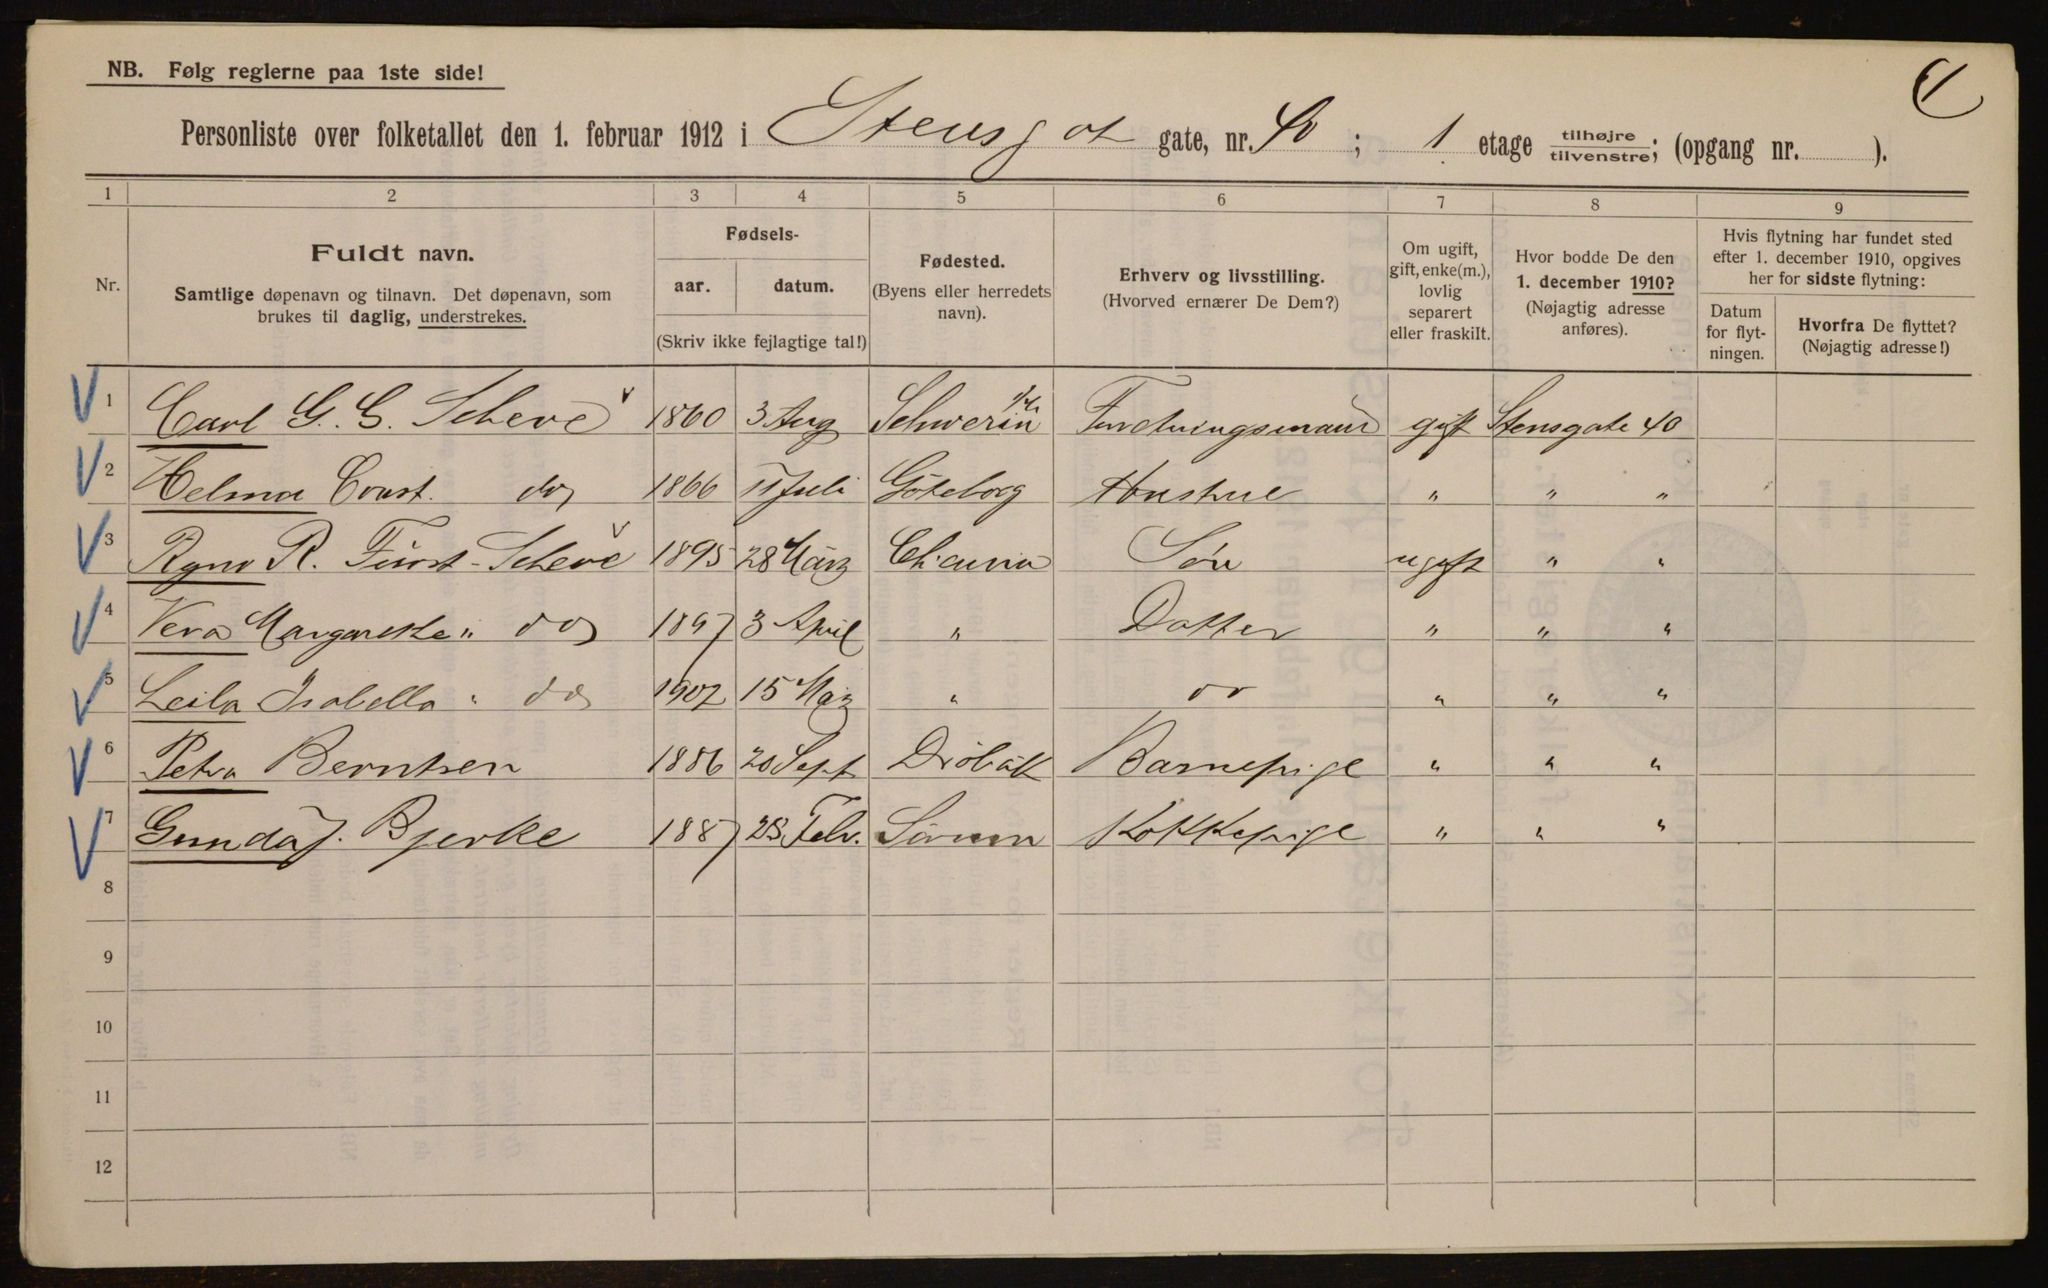 NB. Følg reglerne paa 1ste side!
1
Personliste over folketallet den 1. februar 1912 i Stensgat gate, nr. 40 ; 1 etage tilhøjre/tilvenstre; (opgang nr. ).
1 2 3 4 5 6 7 8 9
Nr.
Fuldt navn.
Samtlige døpenavn og tilnavn. Det døpenavn, som
brukes til daglig, understrekes.
Fødsels-
aar. datum.
(Skriv ikke fejlagtige tal!)
Fødested.
(Byens eller herredets
navn).
Erhverv og livsstilling.
(Hvorved ernærer De Dem?)
Om ugift,
gift, enke(m.),
lovlig
separert
eller fraskilt.
Hvor bodde De den
1. december 1910?
(Nøjagtig adresse
anføres).
Hvis flytning har fundet sted
efter 1. december 1910, opgives
her for sidste flytning:
Datum
for flyt-
ningen.
Hvorfra De flyttet?
(Nøjagtig adresse!)
1 Carl G. G. Scheve 1860 3 Aug Schwerin Forretningsmand gift Stensgate 40
2 Helma Const. do 1866 11 Juli Göteborg Hustrue " " "
3 R. Fürst-Scheve 1895 28 März Chr.ania Sön ugift " "
4 Vera Margarethe " do 1897 3 April " Datter " " "
5 Leila Isabella " do 1902 15 März " do " " "
6 Petra Berntsen 1886 20 Sept Dröbak Barnepige " " "
7 Gunda J. Bjerke 1887 23 Febr. Sörum Kokkepige " " "
8
9
10
11
12